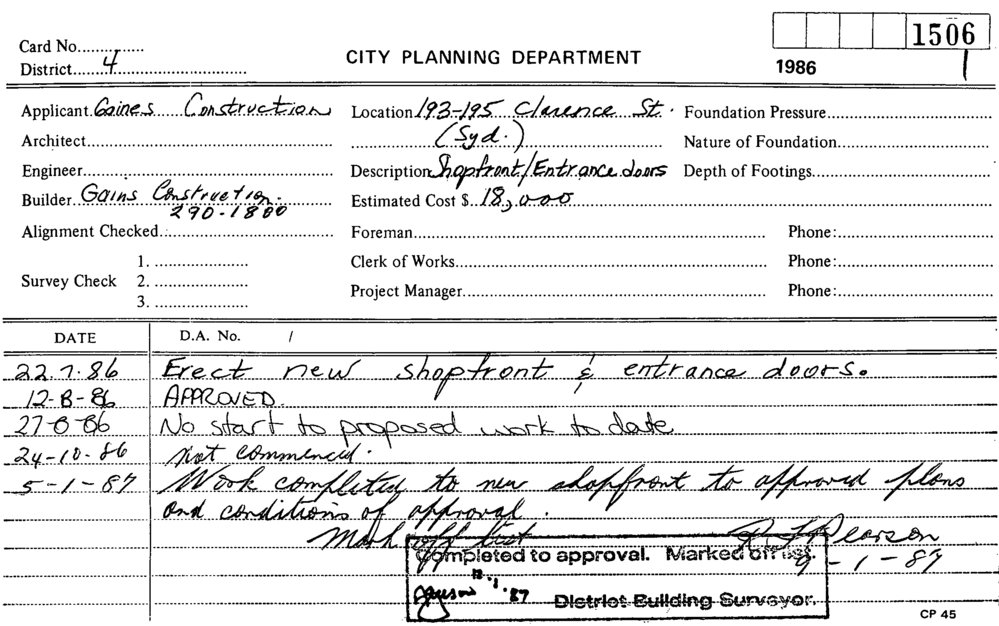 1506
Card No...............
District....4.................................
CITY PLANNING DEPARTMENT
1986 1
Applicant Gaines Construction
Location 193-195 Clarence St.
Foundation Pressure
Architect
(Syd.)
Nature of Foundation
Engineer
Description Shopfront/Entrance doors
Depth of Footings
Builder Gains Construction.
290-1800
Estimated Cost $ 18,000
Alignment Checked
Foreman
Phone:
1.
Clerk of Works
Phone:
Survey Check 2.
3.
Project Manager
Phone:
DATE D.A. No. /
22.7.86 Erect new shopfront & entrance doors.
12-8-86 APPROVED.
27-8-86 No start to proposed work to date
24-10-86 not commenced.
5-1-87 Work completed to new shopfront to approved plans
and conditions of approval.
Mark off list Pearson
9-1-87
Completed to approval. Marked off list.
12.1.87
District Building Surveyor.
CP 45